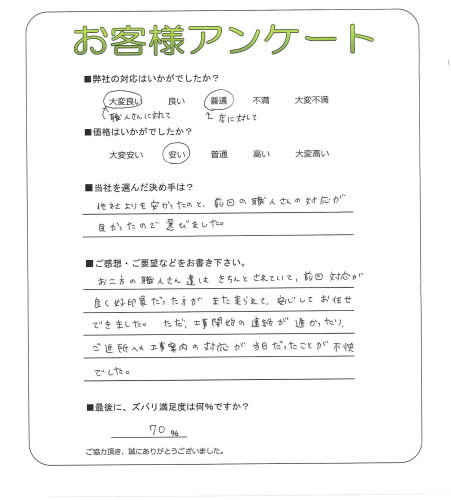 お客様アンケート
■弊社の対応はいかがでしたか?
大変良い 良い 普通 不満 大変不満
職人さんに対して 店に対して
■価格はいかがでしたか?
大変安い 安い 普通 高い 大変高い
■当社を選んだ決め手は?
他社よりも安かったのと、前回の職人さんの対応が
良かったので選びました。
■ご感想・ご要望などをお書き下さい。
お二方の職人さん達はきちんとされていて、前回対応が
良く好印象だった方がまた来られて、安心してお任せ
できました。ただ、工事開始の連絡が遅かったり、
ご近所への工事案内の対応が当日だったことが不快
でした。
■最後に、ズバリ満足度は何%ですか?
70 %
ご協力頂き、誠にありがとうございました。